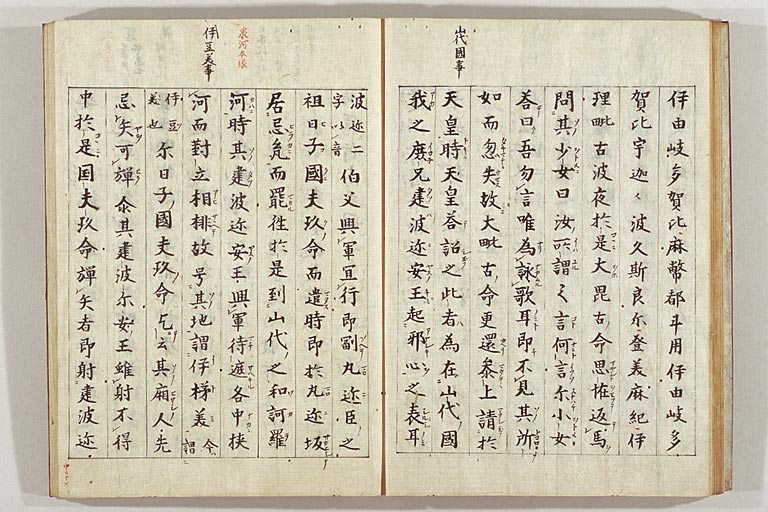 山代國事
伊由岐多賀比麻幣都斗用伊由岐多
賀比宇迦々波久斯良尓登美麻紀伊
理毗古波夜於是大毘古命思恠返馬
問其少女曰汝所謂之言何言尓小女
荅曰吾勿言唯為詠歌耳即不見其所
如而忽失故大毗古命更還叅上請於
天皇時天皇荅詔之此者為在山代國
我之庶兄建波迩安王起邪心之表耳
伊豆美事
波迩二字以音伯父興軍宜行即副丸迩臣之
祖日子國夫玖命而遣時即於丸迩坂
居忌瓮而罷往於是到山代之和訶羅
河時其建波迩安王興軍待遮各中挟
河而對立相挑故号其地謂伊梯美今謂
伊豆美也尓日子國夫玖命乞云其廂人先
忌矢可弾尒其建波尓安王雖射不得
中於是国夫玖命弾矢者即射建波迩